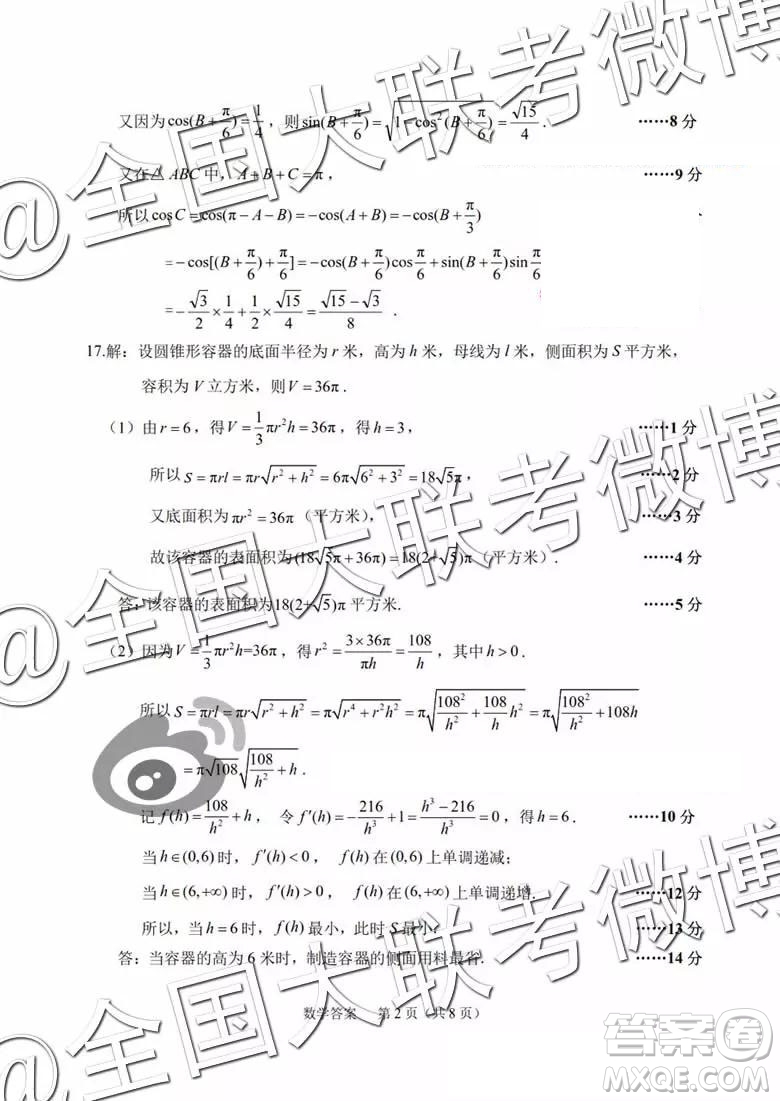 又因为cos(B+π/6)=1/4，则sin(B+π/6)=√(1-cos²(B+π/6))=√15/4． ······8 分
又在△ABC中，A+B+C=π， ······9 分
所以cosC=cos(π-A-B)=-cos(A+B)=-cos(B+π/3)
=-cos[(B+π/6)+π/6]=-cos(B+π/6)cosπ/6+sin(B+π/6)sinπ/6
=-√3/2×1/4+1/2×√15/4=(√15-√3)/8．
17.解：设圆锥形容器的底面半径为 r 米，高为 h 米，母线为 l 米，侧面积为 S 平方米，
容积为 V 立方米，则V=36π．
（1）由 r=6，得V=1/3πr²h=36π，得 h=3， ······1 分
所以 S=πrl=πr√(r²+h²)=6π√(6²+3²)=18√5π， ······2 分
又底面积为πr²=36π（平方米）， ······3 分
故该容器的表面积为(18√5π+36π)=18(2+√5)π（平方米）． ······4 分
答：该容器的表面积为18(2+√5)π 平方米． ······5 分
（2）因为V=1/3πr²h=36π，得 r²=(3×36π)/(πh)=108/h，其中 h>0．
所以 S=πrl=πr√(r²+h²)=π√(r⁴+r²h²)=π√(108²/h²+108/h h²)=π√(108²/h²+108h)
=π√108√(108/h²+h)．
记 f(h)=108/h²+h， 令 f′(h)=-216/h³+1=(h³-216)/h³=0，得 h=6． ······10 分
当 h∈(0,6) 时， f′(h)<0， f(h) 在 (0,6) 上单调递减；
当 h∈(6,+∞) 时， f′(h)>0， f(h) 在 (6,+∞) 上单调递增． ······12 分
所以，当 h=6 时， f(h) 最小，此时 S 最小． ······13 分
答：当容器的高为 6 米时，制造容器的侧面用料最省． ······14 分
数学答案 第 2 页（共 8 页）
@全国大联考微博
@全国大联考微博
答案圈
MXQE.COM